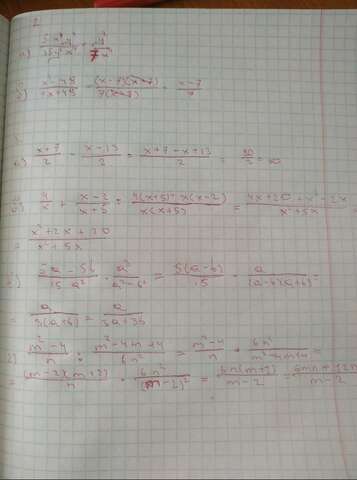 2
x²-49 / 7x+49 = (x-7)(x+7) / 7(x+7) = x-7 / 7
x+7 / 2 - x-13 / 2 = x+7-x+13 / 2 = 20 / 2 = 10
4 / x + x-2 / x+5 = 4(x+5)+x(x-2) / x(x+5) = 4x+20+x²-2x / x²+5x
= x²+2x+20 / x²+5x
5a-5b / 15a² · a³ / a²-b² = 5(a-b) / 15 · a / (a-b)(a+b) =
= a / 3(a+b) = a / 3a+3b
m²-4 / n : m²-4m+4 / 6n² = m²-4 / n · 6n² / m²-4m+4 =
= (m-2)(m+2) / n · 6n² / (m-2)² = 6n(m+2) / m-2 = 6mn+12n / m-2